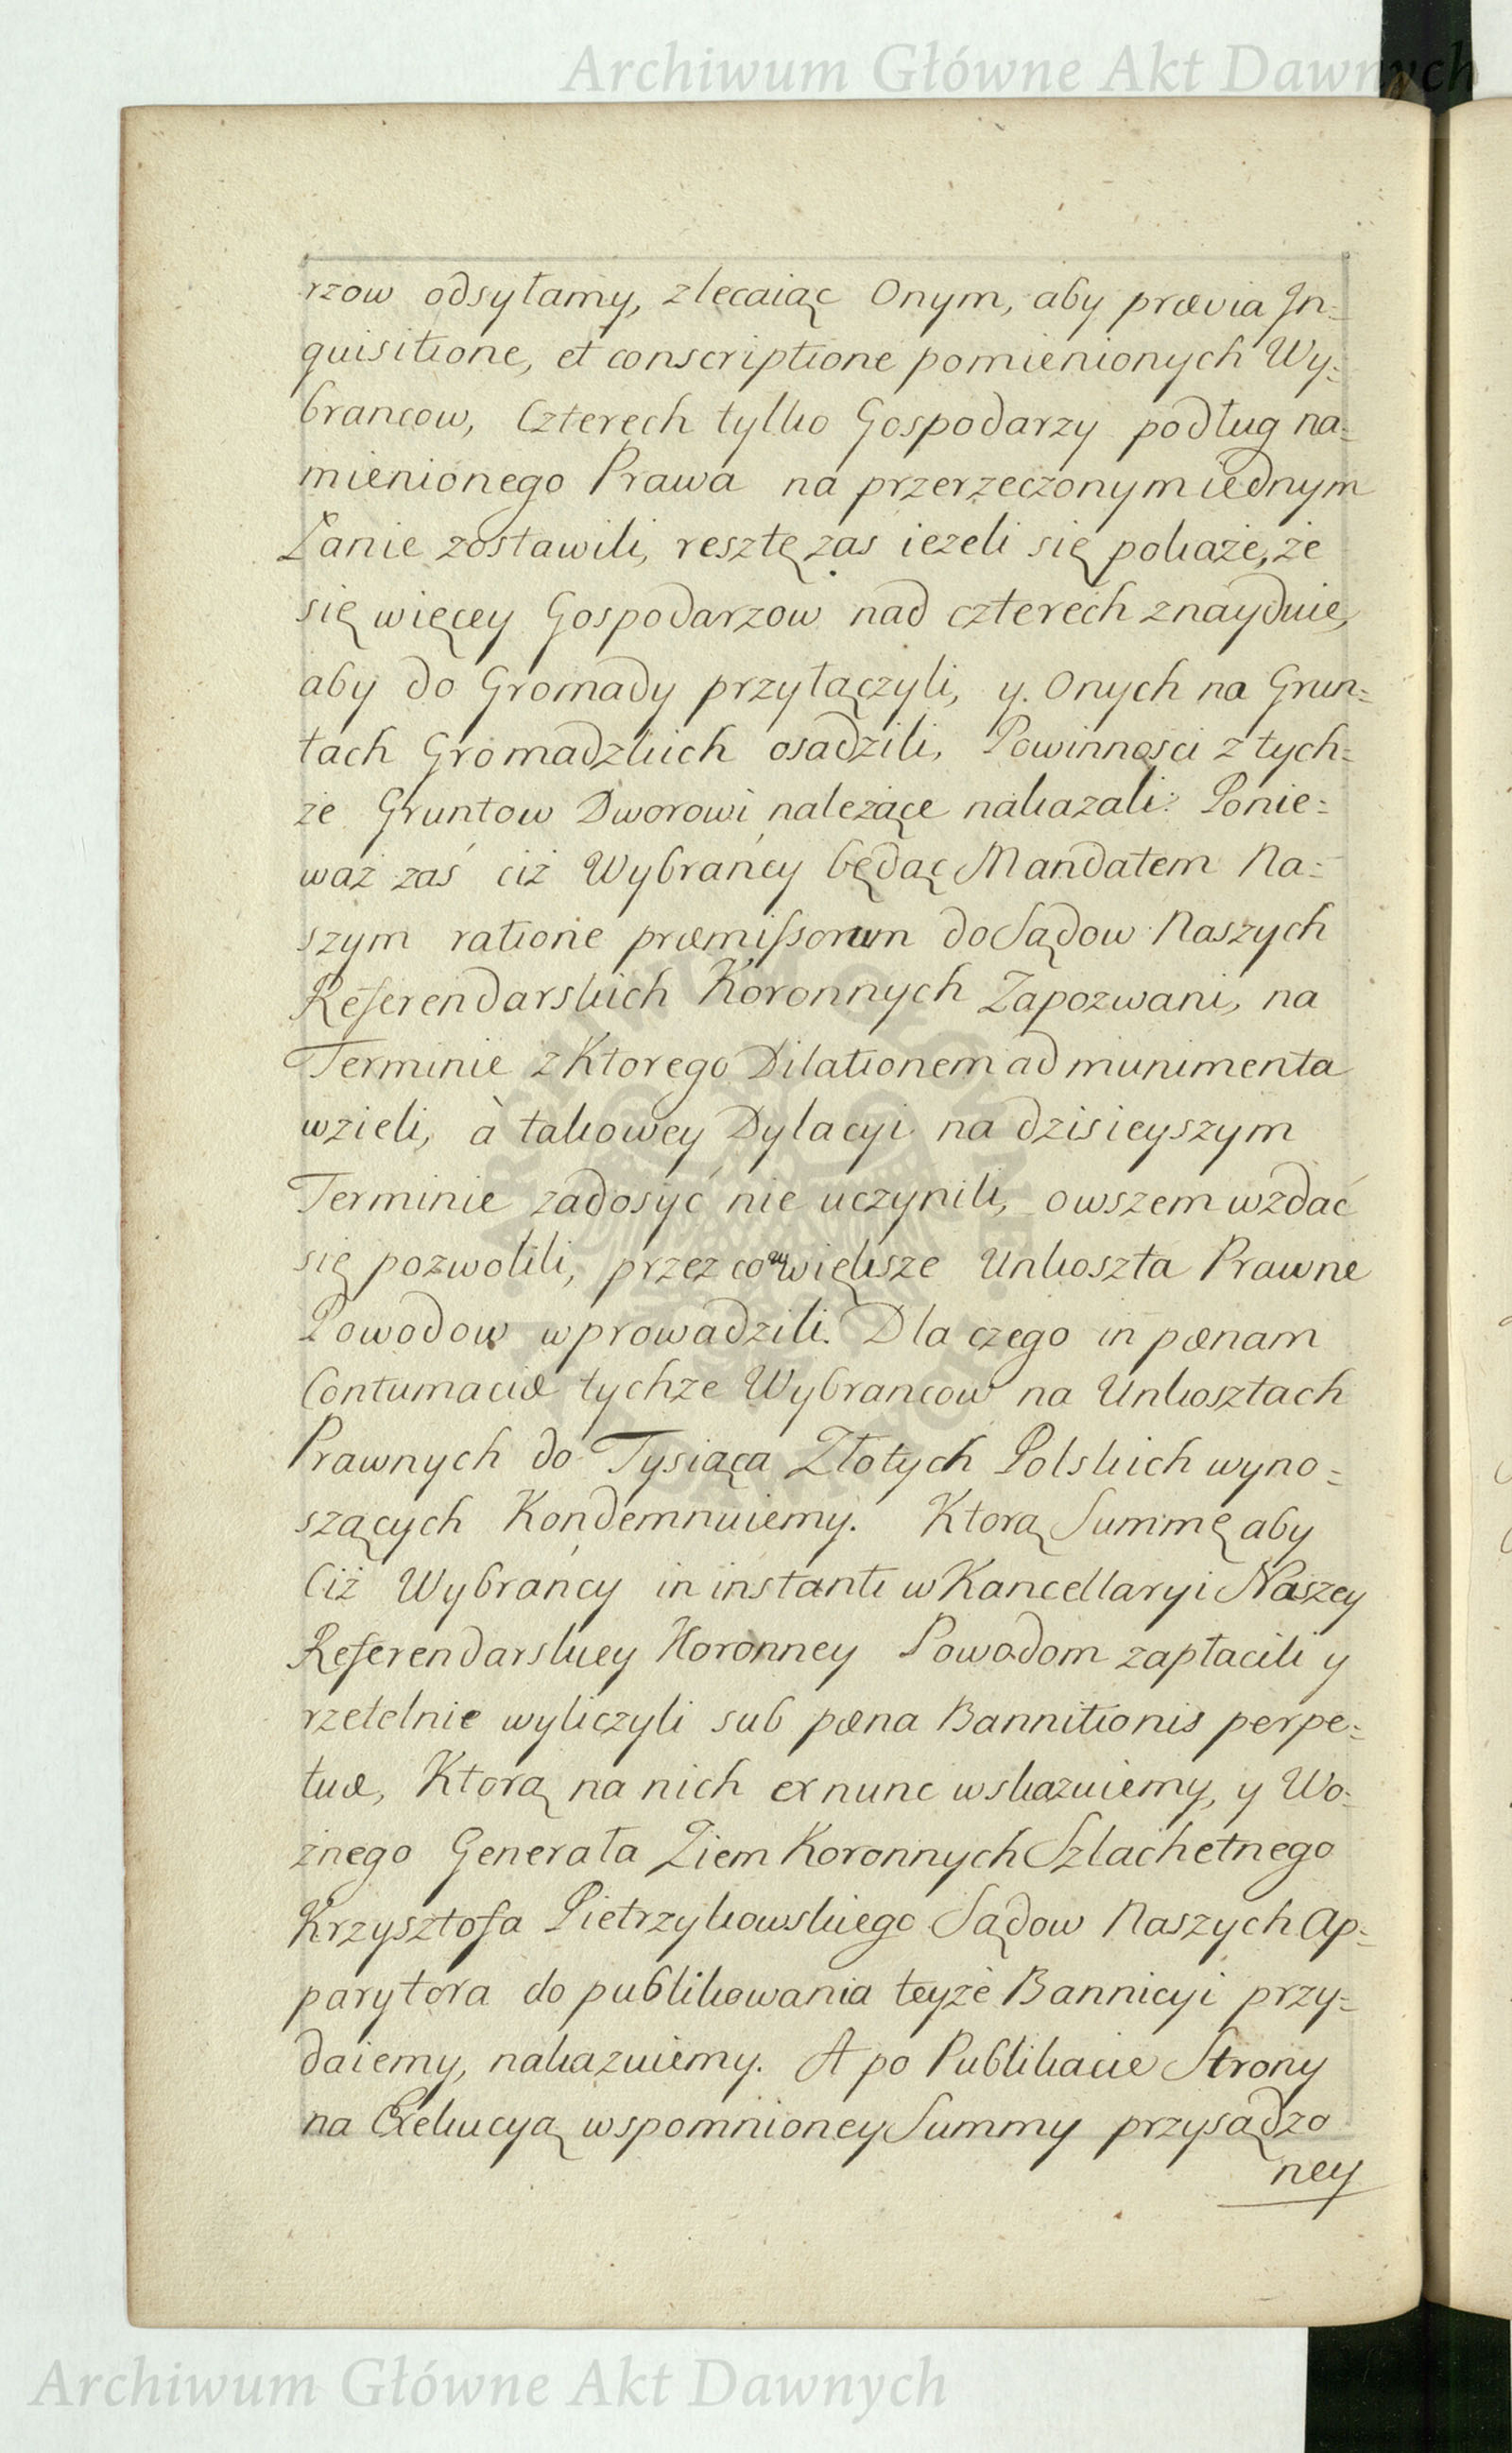 Archiwum Główne Akt Dawnych
rzow odsyłamy, zlecaiąc Onym, aby prævia In=
quisitione, et conscriptione pomienionych Wy=
brancow, Czterech tylko Gospodarzy podług na=
mienionego Prawa na przerzeczonym iednym
Łanie zostawili, resztę zas iezeli się pokaże, że
się więcey Gospodarzow nad czterech znayduie,
aby do Gromady przyłączyli, y. Onych na Grun=
tach Gromadzkich osadzili, Powinnosci z tych=
że Gruntow Dworowi należące nakazali: Ponie=
waż zaś ciż Wybrańcy będąc Mandatem Na=
szym ratione præmissorum do Sądow Naszych
Referendarskich Koronnych Zapozwani, na
Terminie z Ktorego Dilationem ad munimenta
wzieli, à takowey Dylacyi na dzisieyszym
Terminie zadosyć nie uczynili, owszem wzdać
się pozwolili, przez co w większe Unkoszta Prawne
Powodow wprowadzili. Dla czego in pœnam
Contumaciæ tychże Wybrancow na Unkosztach
Prawnych do Tysiąca Złotych Polskich wyno=
szących Kondemnuiemy. Ktorą Summę aby
Ciż Wybrańcy in instanti w Kancellaryi Naszey
Referendarskiey Koronney Powodom zapłacili y
rzetelnie wyliczyli sub pœna Bannitionis perpe=
tuæ, Ktorą na nich ex nunc wskazuiemy, y Wo=
źnego Generała Ziem Koronnych Szlachetnego
Krzysztofa Pietrzykowskiego Sądow Naszych Ap=
parytora do publikowania teyże Bannicyi przy=
daiemy, nakazuiemy. A po Publikacie Strony
na Exekucyą wspomnioney Summy przysądzo
ney
Archiwum Główne Akt Dawnych